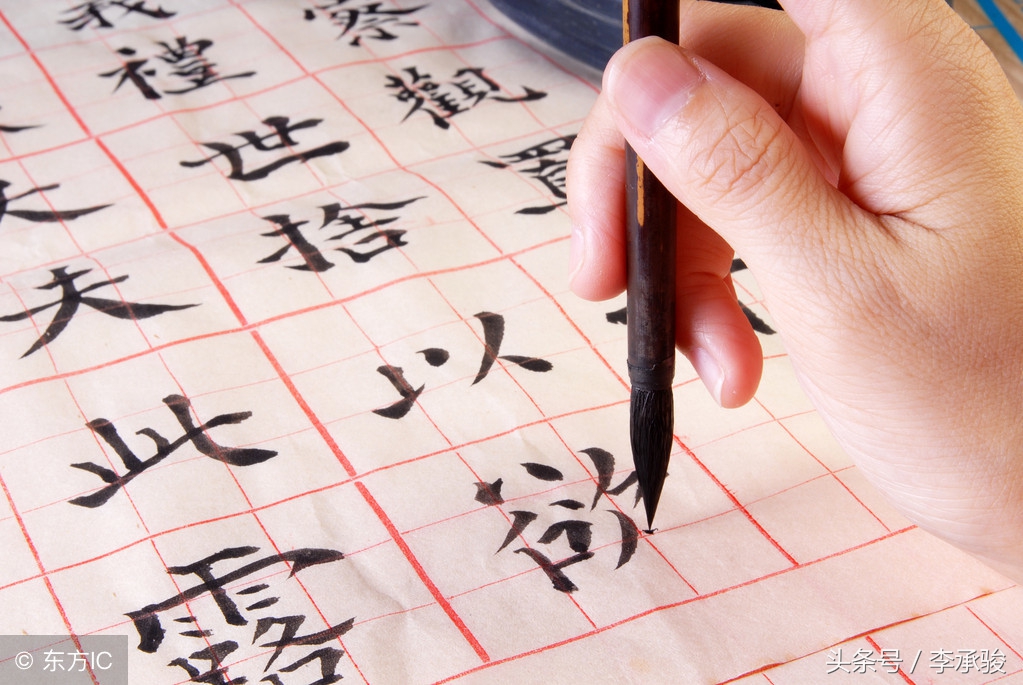 察觀
禮世捨以欲
夫此露
© 东方IC
头条号 / 李承骏